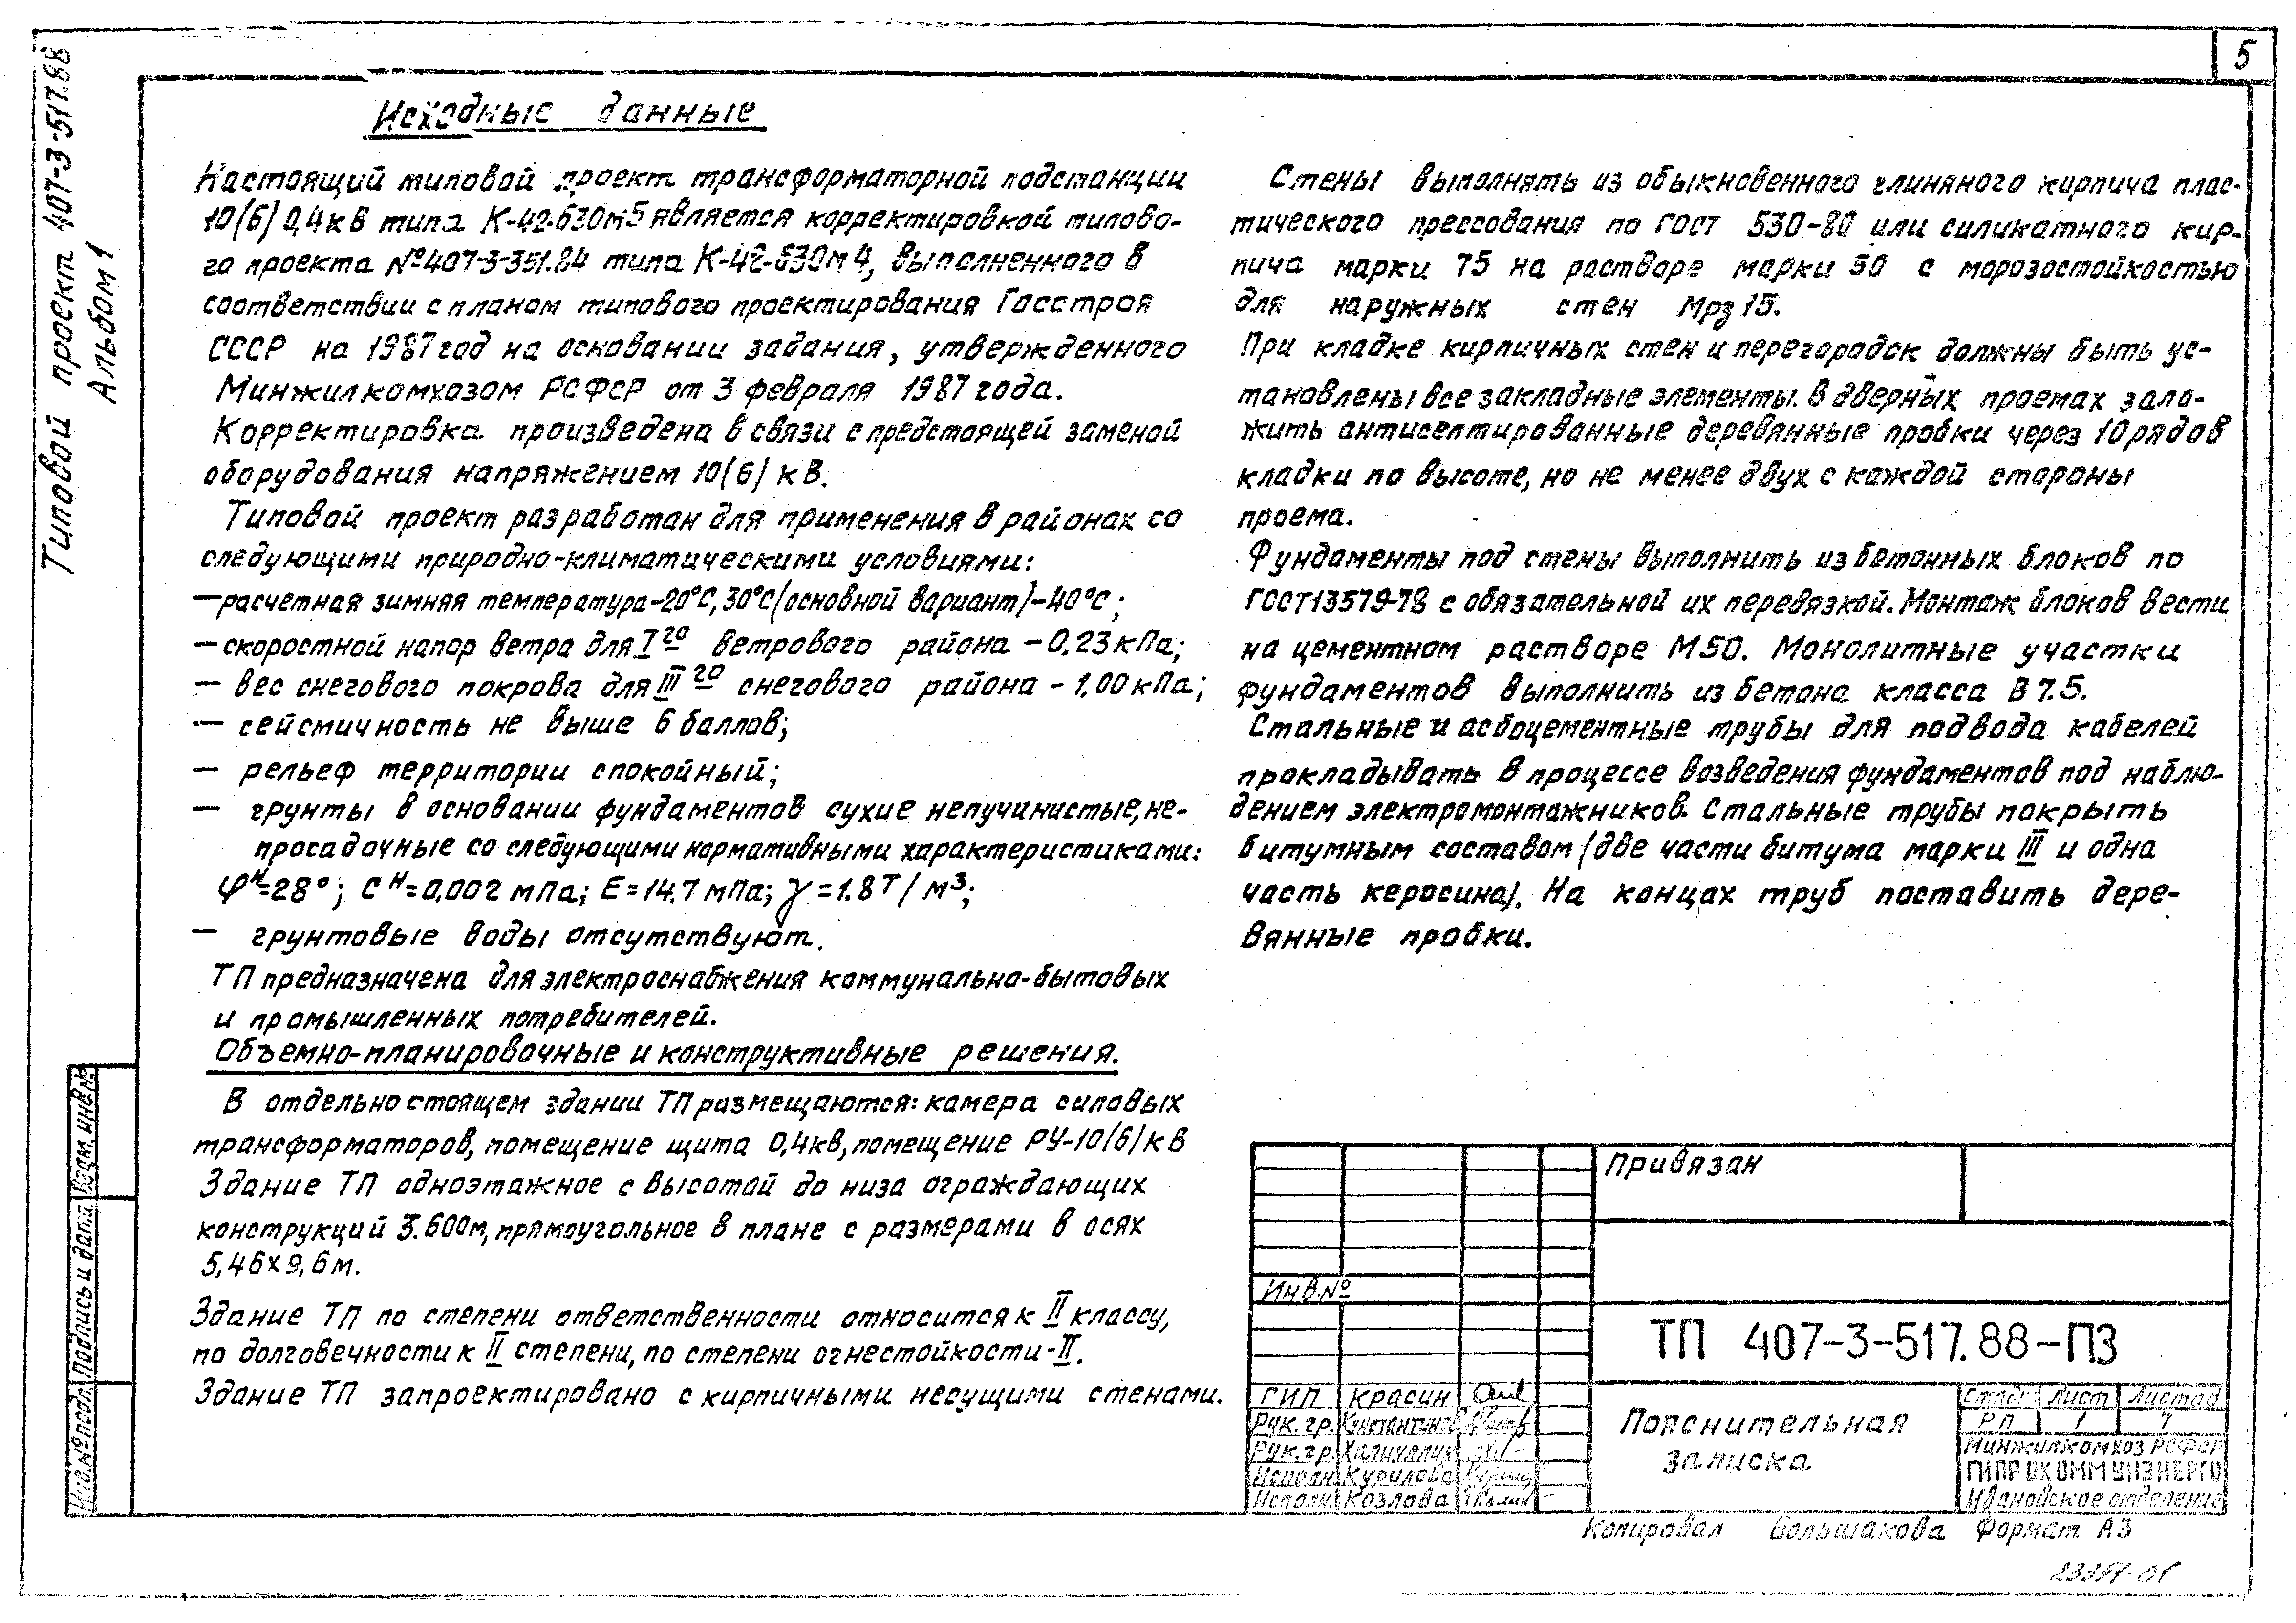 5
Типовой проект 407-3-517.88
Альбом 1
Исходные данные
Настоящий типовой проект трансформаторной подстанции
10(6)0,4кВ типа К-42-630м5 является корректировкой типово-
го проекта №407-3-351.84 типа К-42-630м4, выполненного в
соответствии с планом типового проектирования Госстроя
СССР на 1987 год на основании задания, утвержденного
Минжилкомхозом РСФСР от 3 февраля 1987 года.
Корректировка произведена в связи с предстоящей заменой
оборудования напряжением 10(6) кВ.
Типовой проект разработан для применения в районах со
следующими природно-климатическими условиями:
— расчетная зимняя температура-20°С, 30°С (основной вариант)-40°С;
— скоростной напор ветра для I го ветрового района - 0,23 кПа;
— вес снегового покрова для III го снегового района - 1,00 кПа;
— сейсмичность не выше 6 баллов;
— рельеф территории спокойный;
— грунты в основании фундаментов сухие непучинистые, не-
просадочные со следующими нормативными характеристиками:
φᴴ=28°; Сᴴ=0,002 мПа; Е=14.7 мПа; γ=1.8Т/м³;
— грунтовые воды отсутствуют.
ТП предназначена для электроснабжения коммунально-бытовых
и промышленных потребителей.
Объемно-планировочные и конструктивные решения.
В отдельно стоящем здании ТП размещаются: камера силовых
трансформаторов, помещение щита 0,4кв, помещение РУ-10(6) кВ
Здание ТП одноэтажное с высотой до низа ограждающих
конструкций 3.600м, прямоугольное в плане с размерами в осях
5,46х9,6м.
Здание ТП по степени ответственности относится к II классу,
по долговечности к II степени, по степени огнестойкости-II.
Здание ТП запроектировано с кирпичными несущими стенами.
Стены выполнять из обыкновенного глиняного кирпича плас-
тического прессования по ГОСТ 530-80 или силикатного кир-
пича марки 75 на растворе марки 50 с морозостойкостью
для наружных стен Мрз 15.
При кладке кирпичных стен и перегородок должны быть ус-
тановлены все закладные элементы. В дверных проемах зало-
жить антисептированные деревянные пробки через 10 рядов
кладки по высоте, но не менее двух с каждой стороны
проема.
Фундаменты под стены выполнить из бетонных блоков по
ГОСТ13579-78 с обязательной их перевязкой. Монтаж блоков вести
на цементном растворе М50. Монолитные участки
фундаментов выполнить из бетона класса В 7.5.
Стальные и асбоцементные трубы для подвода кабелей
прокладывать в процессе возведения фундаментов под наблю-
дением электромонтажников. Стальные трубы покрыть
битумным составом (две части битума марки III и одна
часть керосина). На концах труб поставить дере-
вянные пробки.
Привязан
Инв.№
ТП 407-3-517.88-ПЗ
ГИП Красин
Рук.гр. Константинов
Рук.гр. Халиуллин
Исполн. Курилова
Исполн. Козлова
Пояснительная
записка
Стадия Лист Листов
РП 1 7
Минжилкомхоз РСФСР
ГИПРОКОММУНЭНЕРГО
Ивановское отделение
Взам. инв.№
Подпись и дата
Инв.№ подл.
Копировал Большакова Формат А3